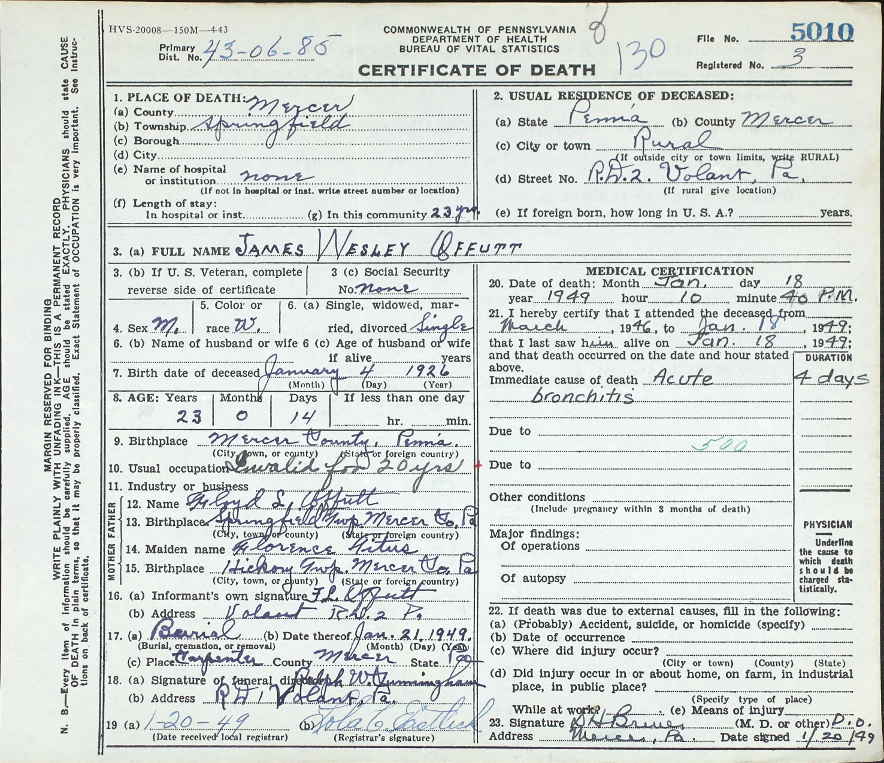 HVS-20008—150M—4-43
COMMONWEALTH OF PENNSYLVANIA
DEPARTMENT OF HEALTH
BUREAU OF VITAL STATISTICS
CERTIFICATE OF DEATH
Primary Dist. No. 43-06-85
8
130
File No. 5010
Registered No. 3
MARGIN RESERVED FOR BINDING
WRITE PLAINLY WITH UNFADING INK—THIS IS A PERMANENT RECORD
N. B.—Every item of information should be carefully supplied. AGE should be stated EXACTLY. PHYSICIANS should state CAUSE
OF DEATH in plain terms, so that it may be properly classified. Exact Statement of OCCUPATION is very important. See Instruc-
tions on back of certificate.
1. PLACE OF DEATH:
(a) County Mercer
(b) Township Springfield
(c) Borough
(d) City
(e) Name of hospital
or institution none
(If not in hospital or inst. write street number or location)
(f) Length of stay:
In hospital or inst. (g) In this community 23 yrs.
2. USUAL RESIDENCE OF DECEASED:
(a) State Penna (b) County Mercer
(c) City or town Rural
(If outside city or town limits, write RURAL)
(d) Street No. R.D.2. Volant, Pa.
(If rural give location)
(e) If foreign born, how long in U. S. A.? years.
3. (a) FULL NAME JAMES WESLEY OFFUTT
3. (b) If U. S. Veteran, complete
reverse side of certificate
3 (c) Social Security
No. None
4. Sex M.
5. Color or
race W.
6. (a) Single, widowed, mar-
ried, divorced Single
6. (b) Name of husband or wife 6 (c) Age of husband or wife
if alive years
7. Birth date of deceased January 4 1926
(Month) (Day) (Year)
8. AGE: Years Months Days If less than one day
23 0 14 hr. min.
9. Birthplace Mercer County, Penna.
(City, town, or county) (State or foreign country)
10. Usual occupation Invalid for 20 yrs
11. Industry or business
FATHER
12. Name Floyd L. Offutt
13. Birthplace Springfield Twp. Mercer Co. Pa
(City, town, or county) (State or foreign country)
MOTHER
14. Maiden name Florence Titus
15. Birthplace Hickory Twp. Mercer Co. Pa
(City, town, or county) (State or foreign country)
16. (a) Informant's own signature F.L. Offutt
(b) Address Volant R.D. 2 P.
17. (a) Burial (b) Date thereof Jan. 21, 1949.
(Burial, cremation, or removal) (Month) (Day) (Year)
(c) Place Carpenter County Mercer State Pa
18. (a) Signature of funeral director Ralph W. Cunningham
(b) Address R.D.1 Volant, Pa.
19 (a) 1-20-49 (b)
(Date received local registrar) (Registrar's signature)
MEDICAL CERTIFICATION
20. Date of death: Month Jan. day 18
year 1949 hour 10 minute 40 P.M.
21. I hereby certify that I attended the deceased from
March, 1946, to Jan. 18, 1949;
that I last saw him alive on Jan. 18, 1949;
and that death occurred on the date and hour stated
above.
DURATION
Immediate cause of death Acute 4 days
bronchitis
Due to
500
Due to
Other conditions
(Include pregnancy within 3 months of death)
Major findings:
Of operations
Of autopsy
PHYSICIAN
Underline
the cause to
which death
should be
charged sta-
tistically.
22. If death was due to external causes, fill in the following:
(a) (Probably) Accident, suicide, or homicide (specify)
(b) Date of occurrence
(c) Where did injury occur?
(City or town) (County) (State)
(d) Did injury occur in or about home, on farm, in industrial
place, in public place?
(Specify type of place)
While at work? (e) Means of injury
23. Signature (M. D. or other) D.O.
Address Mercer, Pa. Date signed 1/20/49